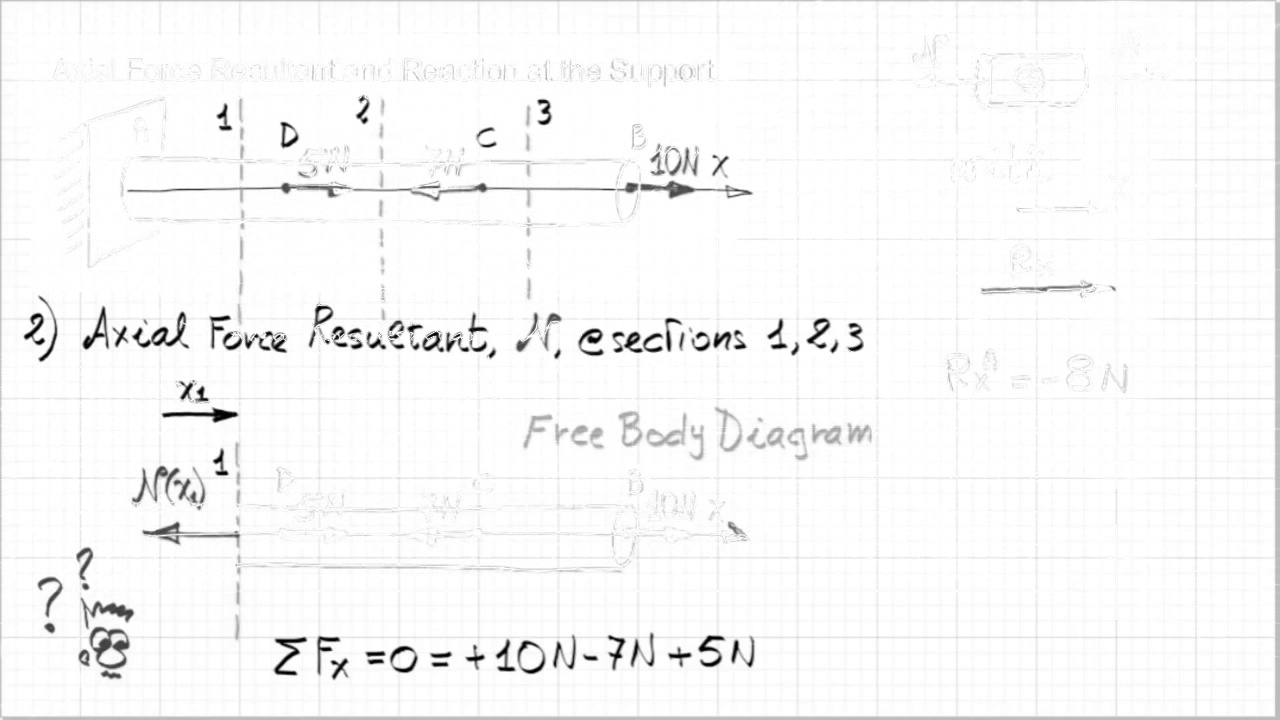 Axial Force Resultant and Reaction at the Support
1 2 3
A D C B
5N 7N 10N x
Rx
2) Axial Force Resultant, N, @sections 1,2,3
RxA = -8N
x1
Free Body Diagram
1
N(x1) D C B
5N 7N 10N x
? ?
ΣFx =0 = +10N-7N+5N